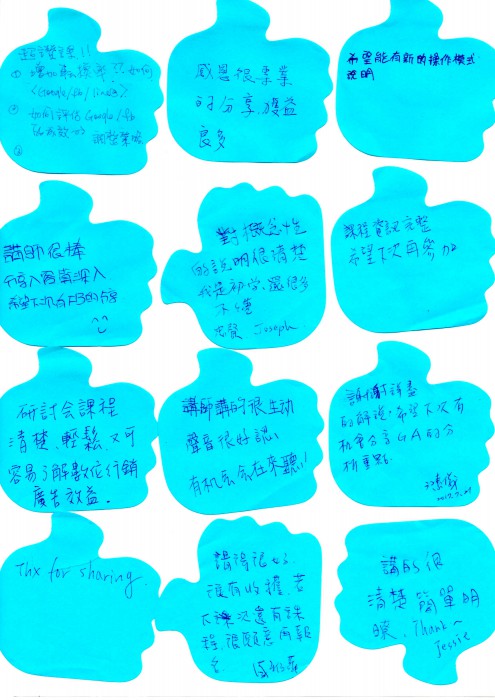 超讚課!!
① 增加
如何
<Google/fb/line@>
② 如何評估 Google/fb
的成效
調整策略
③
感恩很專業
的分享,獲益
良多
希望能有新的操作模式
說明
講師很棒
希望下次有FB的內容
對概念性
的說明很清楚
我是初學,還很多
不懂
Joseph
課程資訊完整
希望下次再參加
研討會課程
清楚、輕鬆、又可
容易了解數位行銷
廣告效益。
講師講的很生動
聲音很好認
有机会会在來聽!!
謝謝詳盡
的解說,希望下次有
機會分享GA的分
析重點。
Thx for sharing.
講得很好,
很有收穫,若
下次還有課
程,很願意再報
名
講的很
清楚 簡單明
瞭、Thank~
Jessie